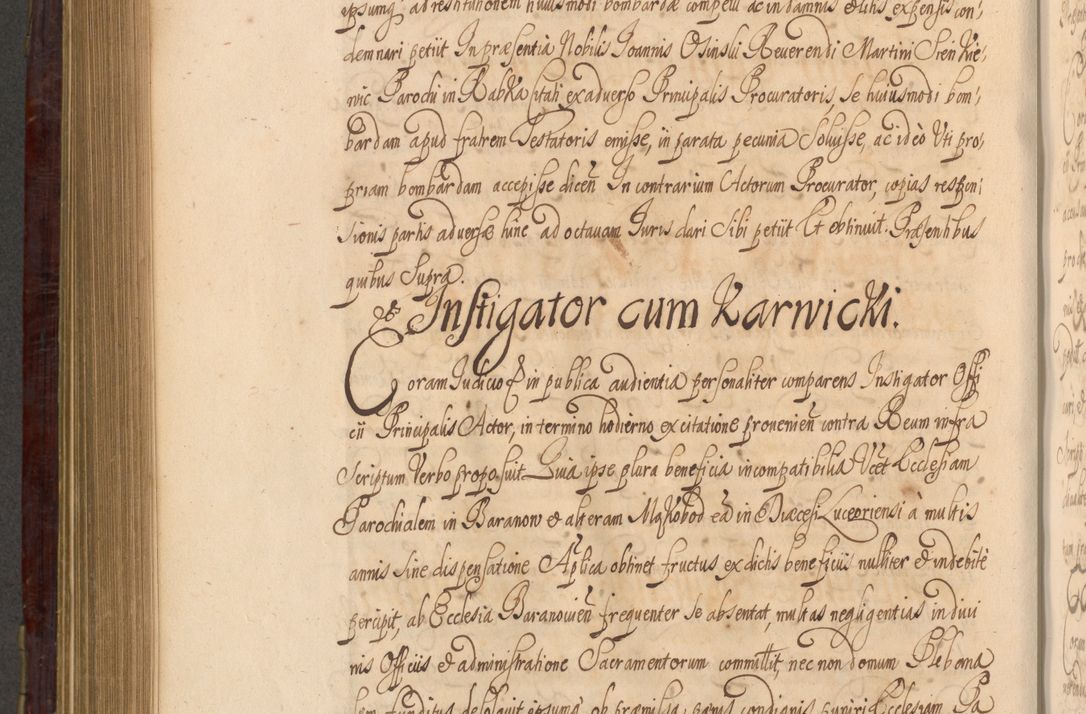 ipsumq; ad restitutionem huiusmodi bombardæ compelli ac in damnis & litis expensis con,
demnari petiit In præsentia Nobilis Ioannis Osinski Reuerendi Martini Sien Kie,
wic Parochi in Rabka citati ex aduerso Principalis Procuratoris, se huiusmodi bom,
bardam apud fratrem Testatoris emisse, in parata pecunia Soluisse, ac ideò Uti pro,
priam bombardam accepisse dicen̄ In contrarium Actorum Procurator, copias respon,
sionis partis aduersæ hinc ad octauam Iuris dari Sibi petiit Et obtinuit. Præsentibus
quibus Supra.
Instigator cum Karwicki.
Coram Iudicio & in publica audientia personaliter comparens Instigator Offi
cii Principalis Actor, in termino hodierno ex citatione prouenien̄ contra Reum infra
Scriptum Verbo proposuit Quia ipse plura beneficia incompatibilia Vcet Ecclesiam
Parochialem in Baranow & alteram Mąkobod eā in Diæcesi Luceoriensi à multis
annis sine dispensatione Aplica obtinet fructus ex dictis beneficiis nulliter & indebitè
percipit, ab Ecclesia Baranouien̄ frequenter se absentat, multas negligentias in diui
nis Officiis & administratione Sacramentorum committit, nec non domum Plebana
lem funditus desolauit ipsumq; ob præmissa pænis condignis puniri Ecclesiam Pa